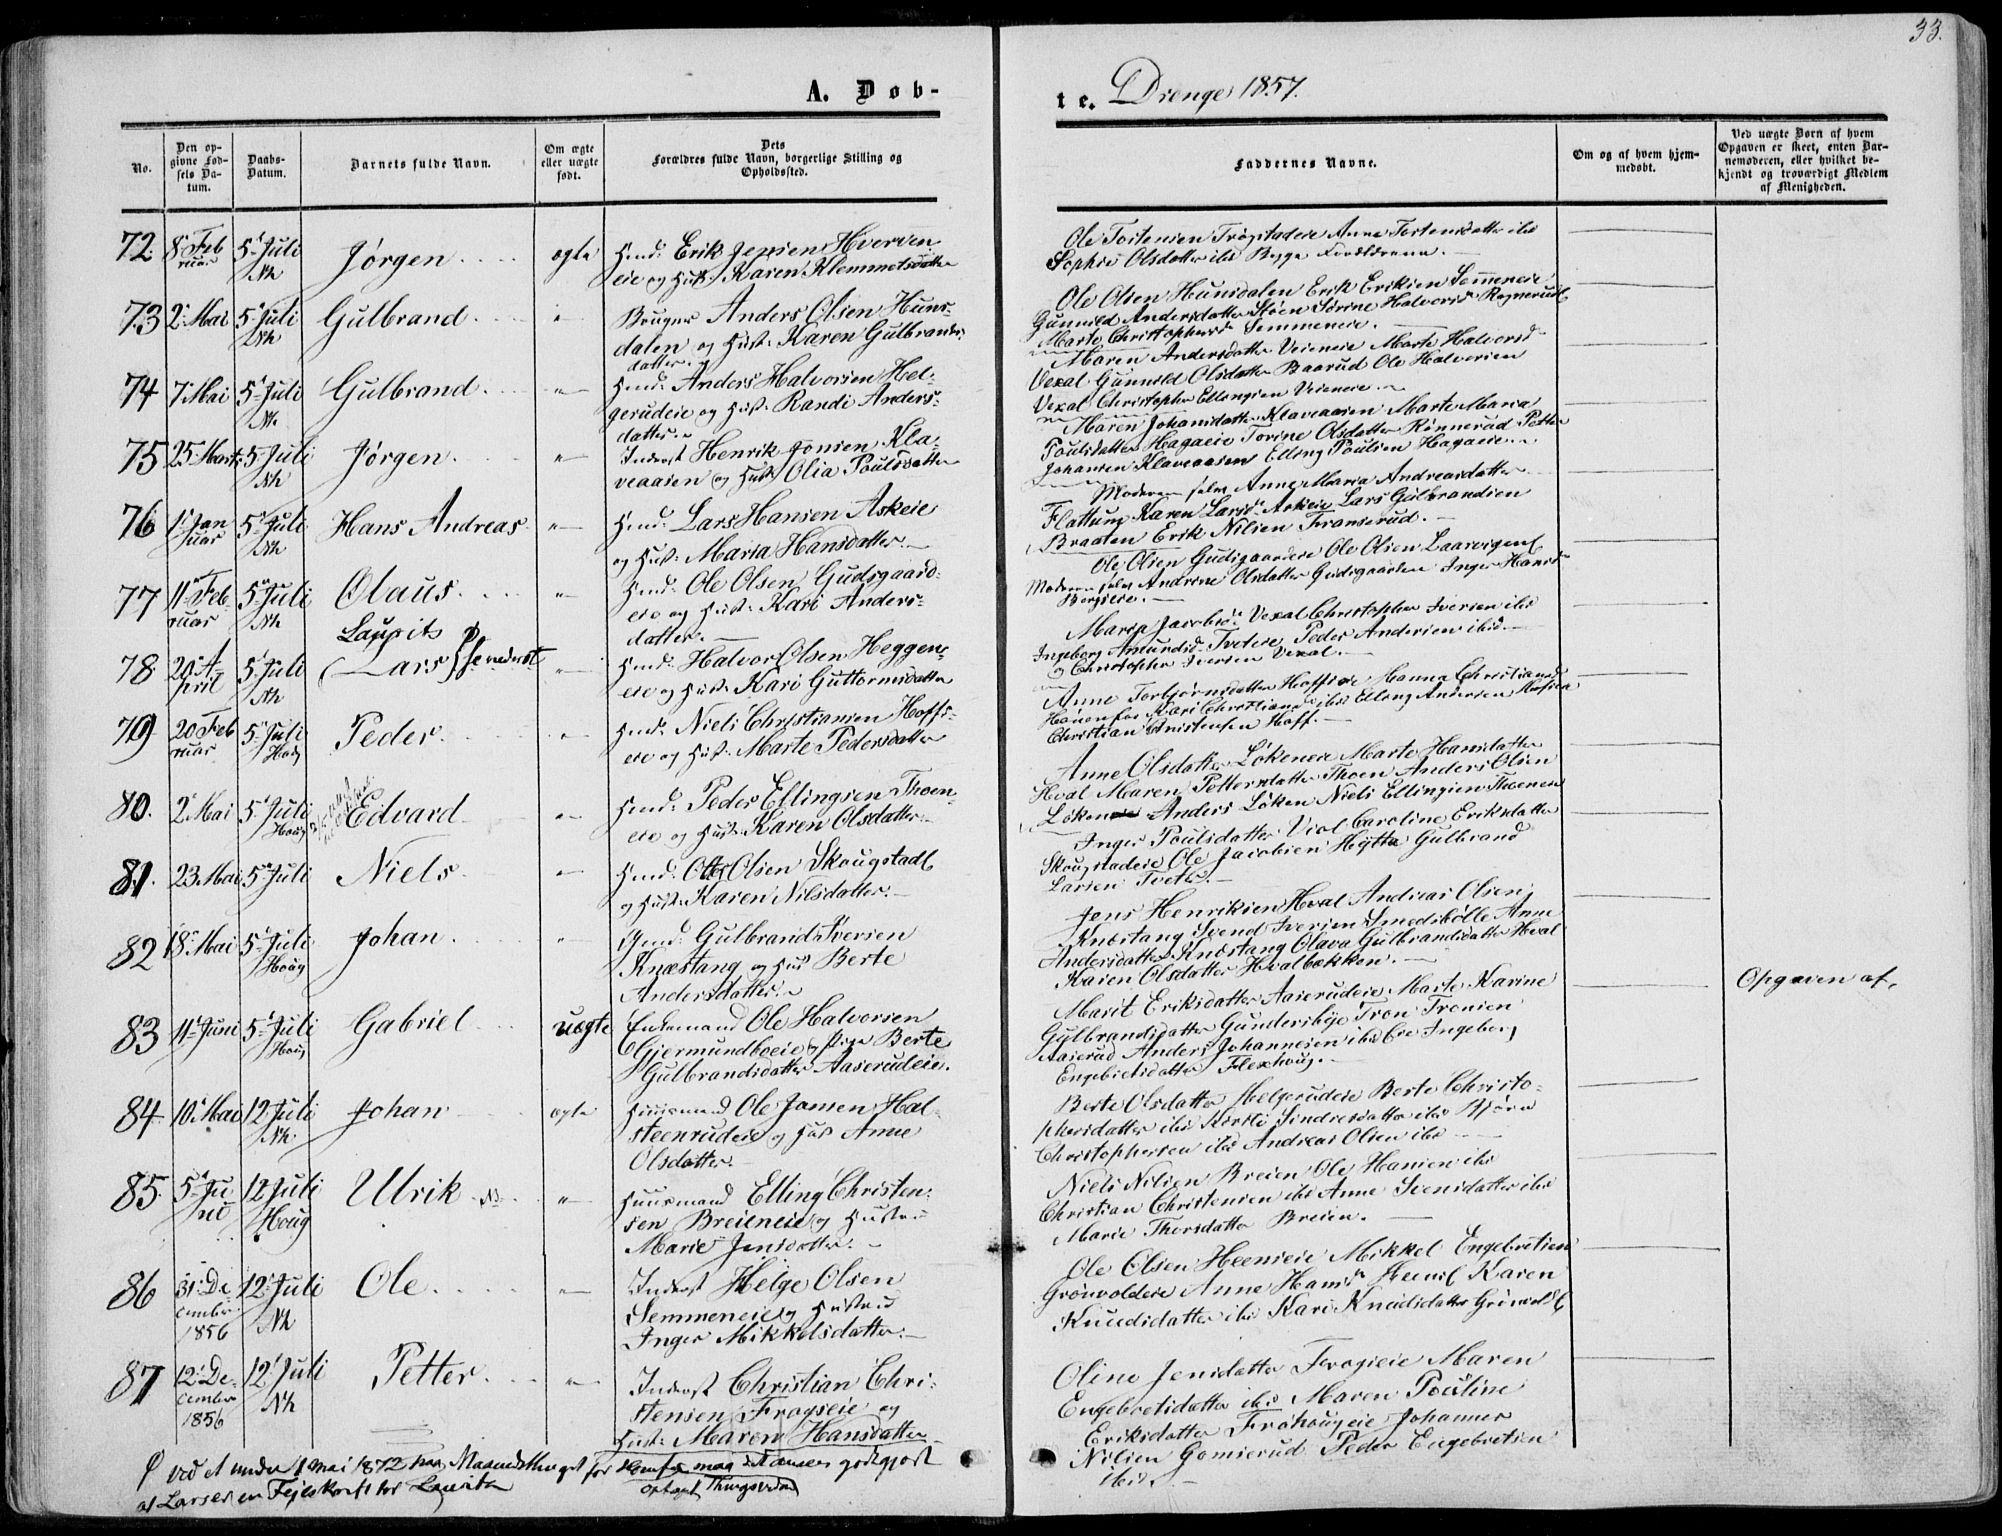 33.
A. Døb-
te. Drenge 1857.
No.
Den op-
givne Fød-
sels Da-
tum.
Daabs-
Datum.
Barnets fulde Navn.
Om ægte
eller uægte
født.
Dets
Forældres fulde Navn, borgerlige Stilling og
Opholdssted.
Faddernes Navne.
Om og af hvem hjem-
medøbt.
Ved uægte Børn af hvem
Opgaven er skeet, enten Bar-
nemoderen, eller hvilket be-
kjendt og troværdigt Medlem
af Menigheden.
72. 8 Feb 5 Juli Jørgen ægte Huusd: Erik Jensen Hverven
ruar Nh eie og Hust: Karen Klemmetsdatter
Ole Tostensen Trøgstadeie Anne Tostensdatter ibid
Sophie Olsdatter ibid Begge Forældrene.
73 2 Mai 5 Juli Gulbrand " Bruger Anders Olsen Huns-
Nh dalen og Hust: Karen Gulbrands-
datter
Ole Olsen Hunsdalen Erik Eriksen Semmeneie
Gunnild Andersdatter Støen Sørine Halvorsd. Rognerud
Marte Christophersd. Semmeneie.
74 7 Mai 5 Juli Gulbrand " Huusd: Anders Halvorsen Hel-
Nh gerudeie og Hust: Randi Anders-
datter
Maren Andersdatter Veieneie Marte Halvorsd.
Vexal Gunnild Olsdatter Baarud Ole Halvorsen
Vexal Christopher Ellingsen Veieneie
75 25 Marts 5 Juli Jørgen " Inderst Henrik Jonsen Kla-
Nh veaasen og Hust: Olia Poulsdatter
Maren Johansdatter Klaveaasen Marte Maria
Poulsdatter Hagaeie Torine Olsdatter Rønnerud Petter
Johansen Klaveaasen Elling Poulsen Hagaeie
76 1 Jan 5 Juli Hans Andreas " Huusd: Lars Hansen Askeie
uar Nh og Hust: Maria Hansdatter.
Moderen selv Anne Maria Andreasdatter
Flattum Karen Larsd. Askeie Lars Gulbrandsen
Braaten Erik Nilsen Franserud.
77 11 Feb- 5 Juli Olaus " Huusd: Ole Olsen Gudsgaard-
ruar Nh eie og Hust: Kari Anders-
datter.
Ole Olsen Gudsgaardeie Ole Olsen Laarvigen
Moderen selv Andrine Olsdatter Gudsgaarden Inger Hansd.
Bergseie.
Laurits
78 20 A- 5 Juli Lars " Huusd: Halvor Olsen Heggen-
pril Nh eie og Hust: Kari Guttormsdatter
Maria Jacobsd. Vexal Christopher Iversen ibid
Ingeborg Amundsd. Tveteie Peder Andersen ibid.
Christopher Iversen Vexal.
79 20 Feb 5 Juli Peder " Huusd: Niels Christiansen Hoffs-
ruar Houg eie og Hust: Marte Pedersdatter
Anne Torbjørnsdatter Hoffseie Hanna Christiansd.
Hønenfos Kari Christiansd. ibid Elling Andersen Hofseie
Christian Christensen Hoff.
80. 2 Mai 5 Juli Edvard " Huusd: Peder Ellingsen Thoen-
Houg eie og Hust: Karen Olsdatter.
Anne Olsdatter Løkeneie Marte Hansdatter
Hval Maren Pettersdatter Thoen Anders Olsen
Løken Anders Løken Niels Ellingsen Thoeneie
81. 23 Mai 5 Juli Niels " Huusd: Otto Olsen Skougstad
og Hust: Karen Nilsdatter.
Inger Poulsdatter Viol Caroline Eriksdatter
Skougstadeie Ole Jacobsen Hytta Gulbrand
Larsen Tveter.
82 18 Mai 5 Juli Johan " Gmd: Gulbrand Iversen
Houg Knæstang og Hust Berte
Andersdatter
Jens Henriksen Hval Andreas Olsen
Knæstang Svend Iversen Smedshølle Anne
Andersdatter Knæstang Olava Gulbrandsdatter Hval
Karen Olsdatter Hvalbækken.
83 11 Juni 5 Juli Gabriel uægte Enkemand Ole Halvorsen
Houg Gjermundboeie og Pige Berte
Gulbrandsdatter Aaserudeie.
Marit Eriksdatter Aaserudeie Marte Karine
Gulbrandsdatter Gundersbye Tron Tronsen
Aaserud Anders Johannesen ibid Ingeborg
Engebretsdatter Flexhoug.
Opgaven af,
84 10 Mai 12 Juli Johan ægte Huusmand Ole Jansen Hal-
Nh steenrudeie og Hust Anne
Olsdatter.
Berte Olsdatter Helgerudeie Berte Christo-
phersdatter ibid Kirsti Sindresdatter ibid Bjørn
Christophersen ibid Andreas Olsen ibid
85. 5 Ju 12 Juli Ulrik " Huusmand Elling Christen-
ni Houg sen Breieneie og Hustru
Marie Jensdatter.
Niels Nilsen Breien Ole Hansen ibid
Christian Christensen ibid Anne Svensdatter ibid
Marie Thorsdatter Breien.
86 31 De 12 Juli Ole " Inderst Helge Olsen
cember Nh Semmeneie og Hustru
1856 Inger Mikkelsdatter.
Ole Olsen Heenseie Mikkel Engebretsen
Grønvoldeie Anne Hansd. Karen
Knudsdatter ibid Kari Knudsdatter Grønvold
87 12 De- 12 Juli Petter " Inderst Christian Chri-
cember Nh stensen Frøgseie og
1856 Hust: Maren Hansdatter
Oline Jensdatter Frøgseie Maren
Engebretsdatter ibid Maren Pouline
Eriksdatter Frøhougeie Johannes
Nilsen Gomserud Peder Engebretsen
ibid.
ved et under 1 Mai 1872 paa Maanedsthinget for godtgjort
at Lars er en Fejlskrift for Laurits optaget Thingsvidne